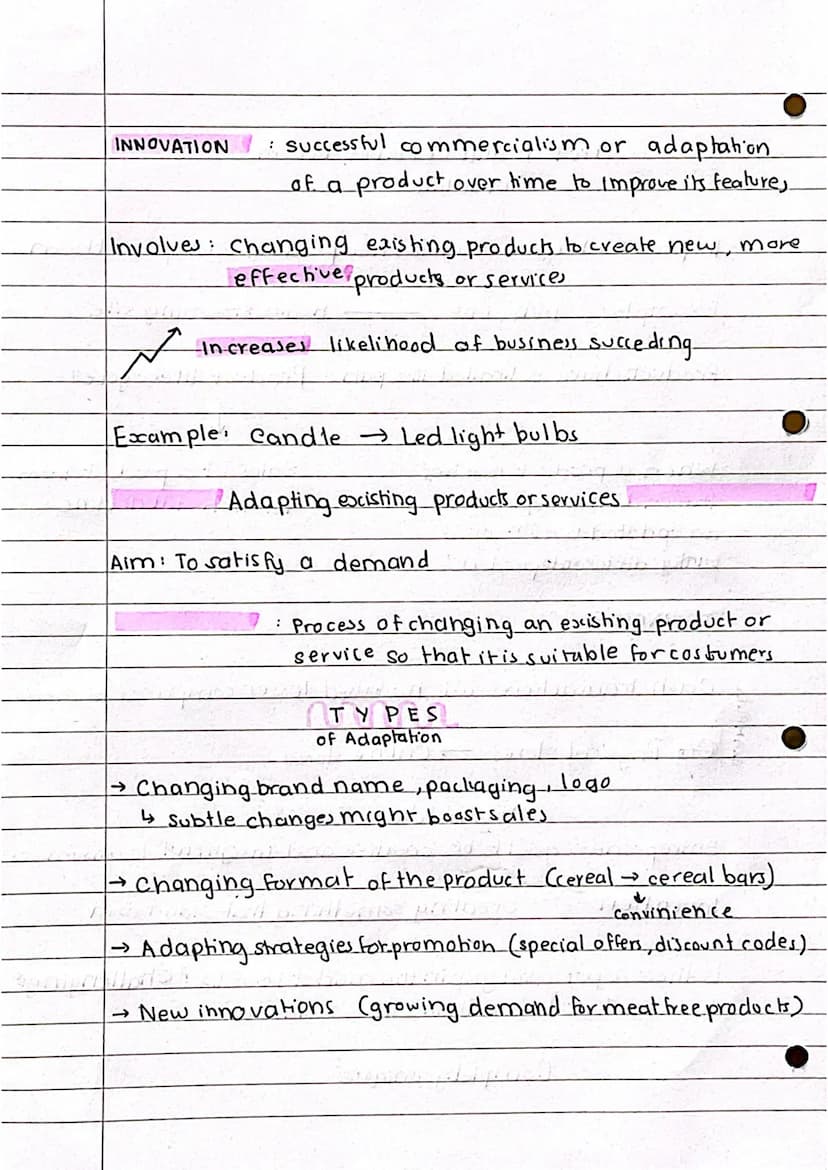 INNOVATION : successful commercialism or adaptation
of a product over time to improve its features
Involves : changing existing products to create new, more
effective products or services
Increases likelihood of business succeding
Example: Candle → Led light bulbs
Adapting existing products or services
Aim: To satisfy a demand
: Process of changing an existing product or
service so that it is suitable for costumers
TYPES
of Adaptation
→ Changing brand name, packaging, logo
↳ subtle changes might boost sales
→ Changing format of the product (cereal → cereal bars)
↓
convinience
→ Adapting strategies for promotion (special offers, discount codes)
→ New innovations (growing demand for meat free products)